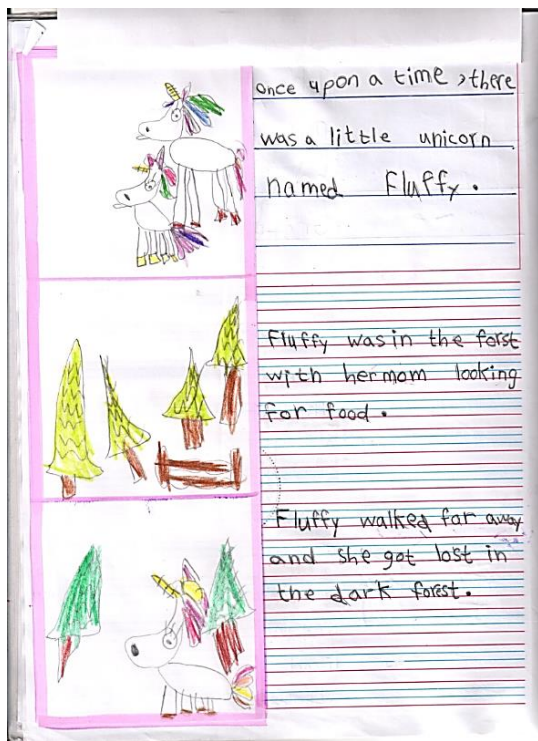 once upon a time, there
was a little unicorn
named Fluffy.
Fluffy was in the forst
with her mom looking
for food.
Fluffy walked far away
and she got lost in
the dark forest.